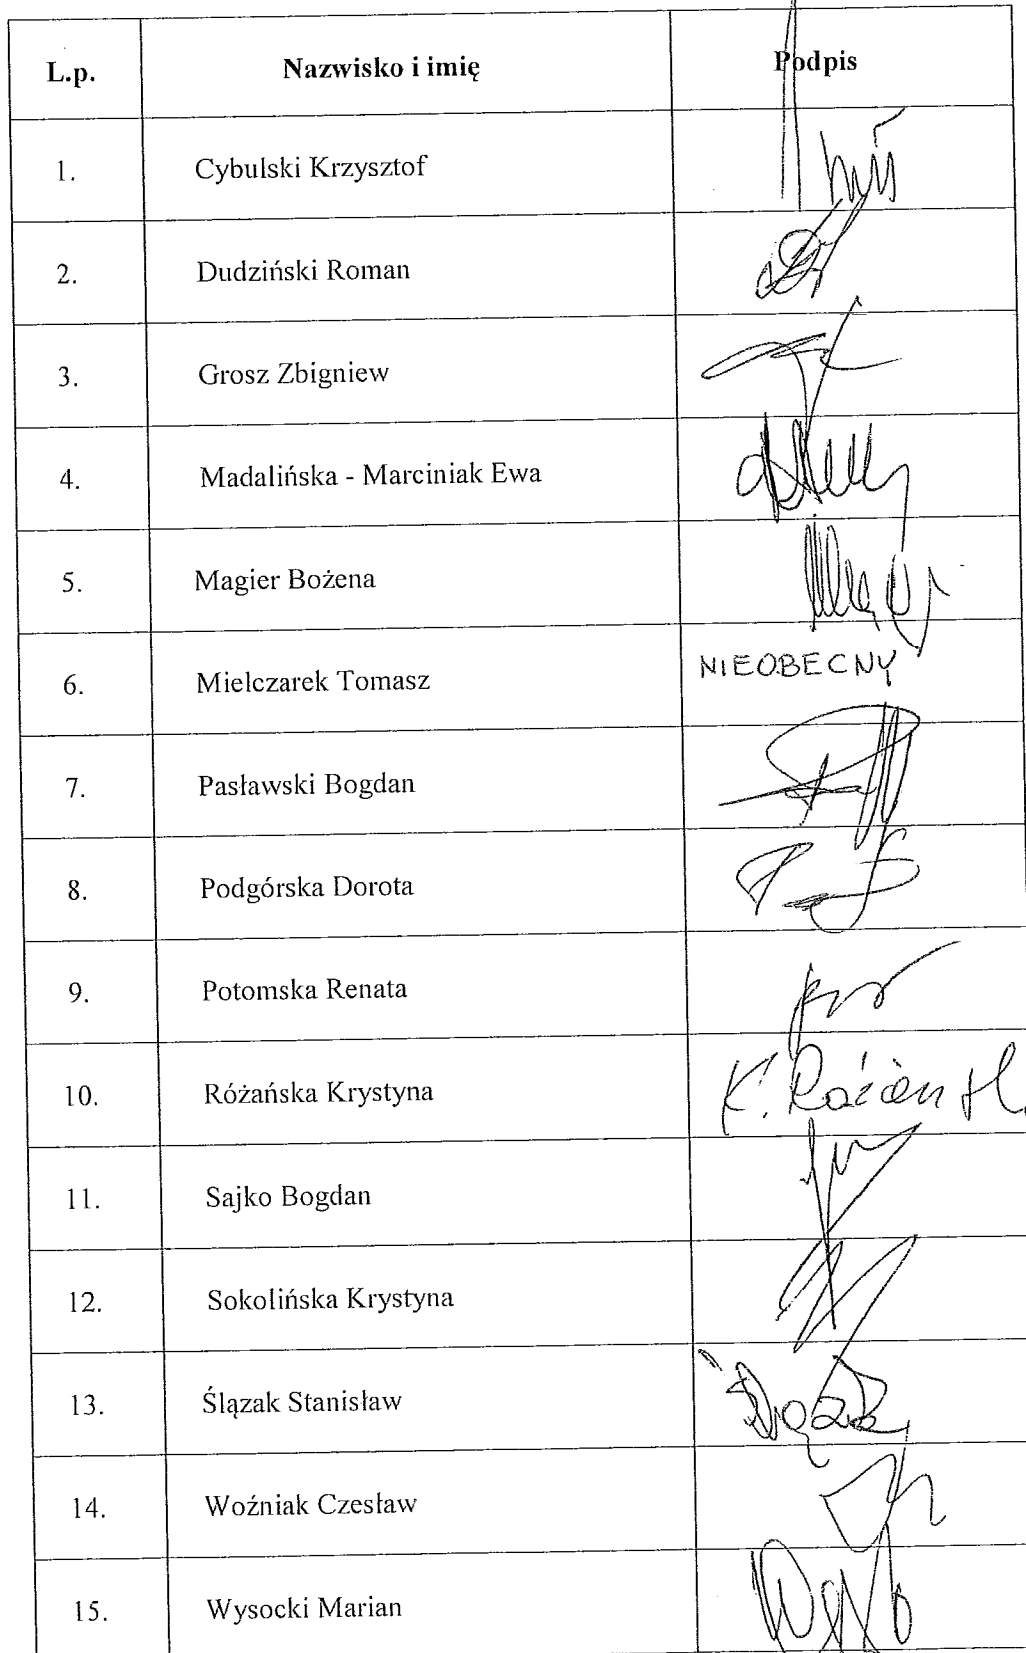 L.p. Nazwisko i imię Podpis
1. Cybulski Krzysztof
2. Dudziński Roman
3. Grosz Zbigniew
4. Madalińska - Marciniak Ewa
5. Magier Bożena
6. Mielczarek Tomasz NIEOBECNY
7. Pasławski Bogdan
8. Podgórska Dorota
9. Potomska Renata
10. Różańska Krystyna K.
11. Sajko Bogdan
12. Sokolińska Krystyna
13. Ślązak Stanisław
14. Woźniak Czesław
15. Wysocki Marian